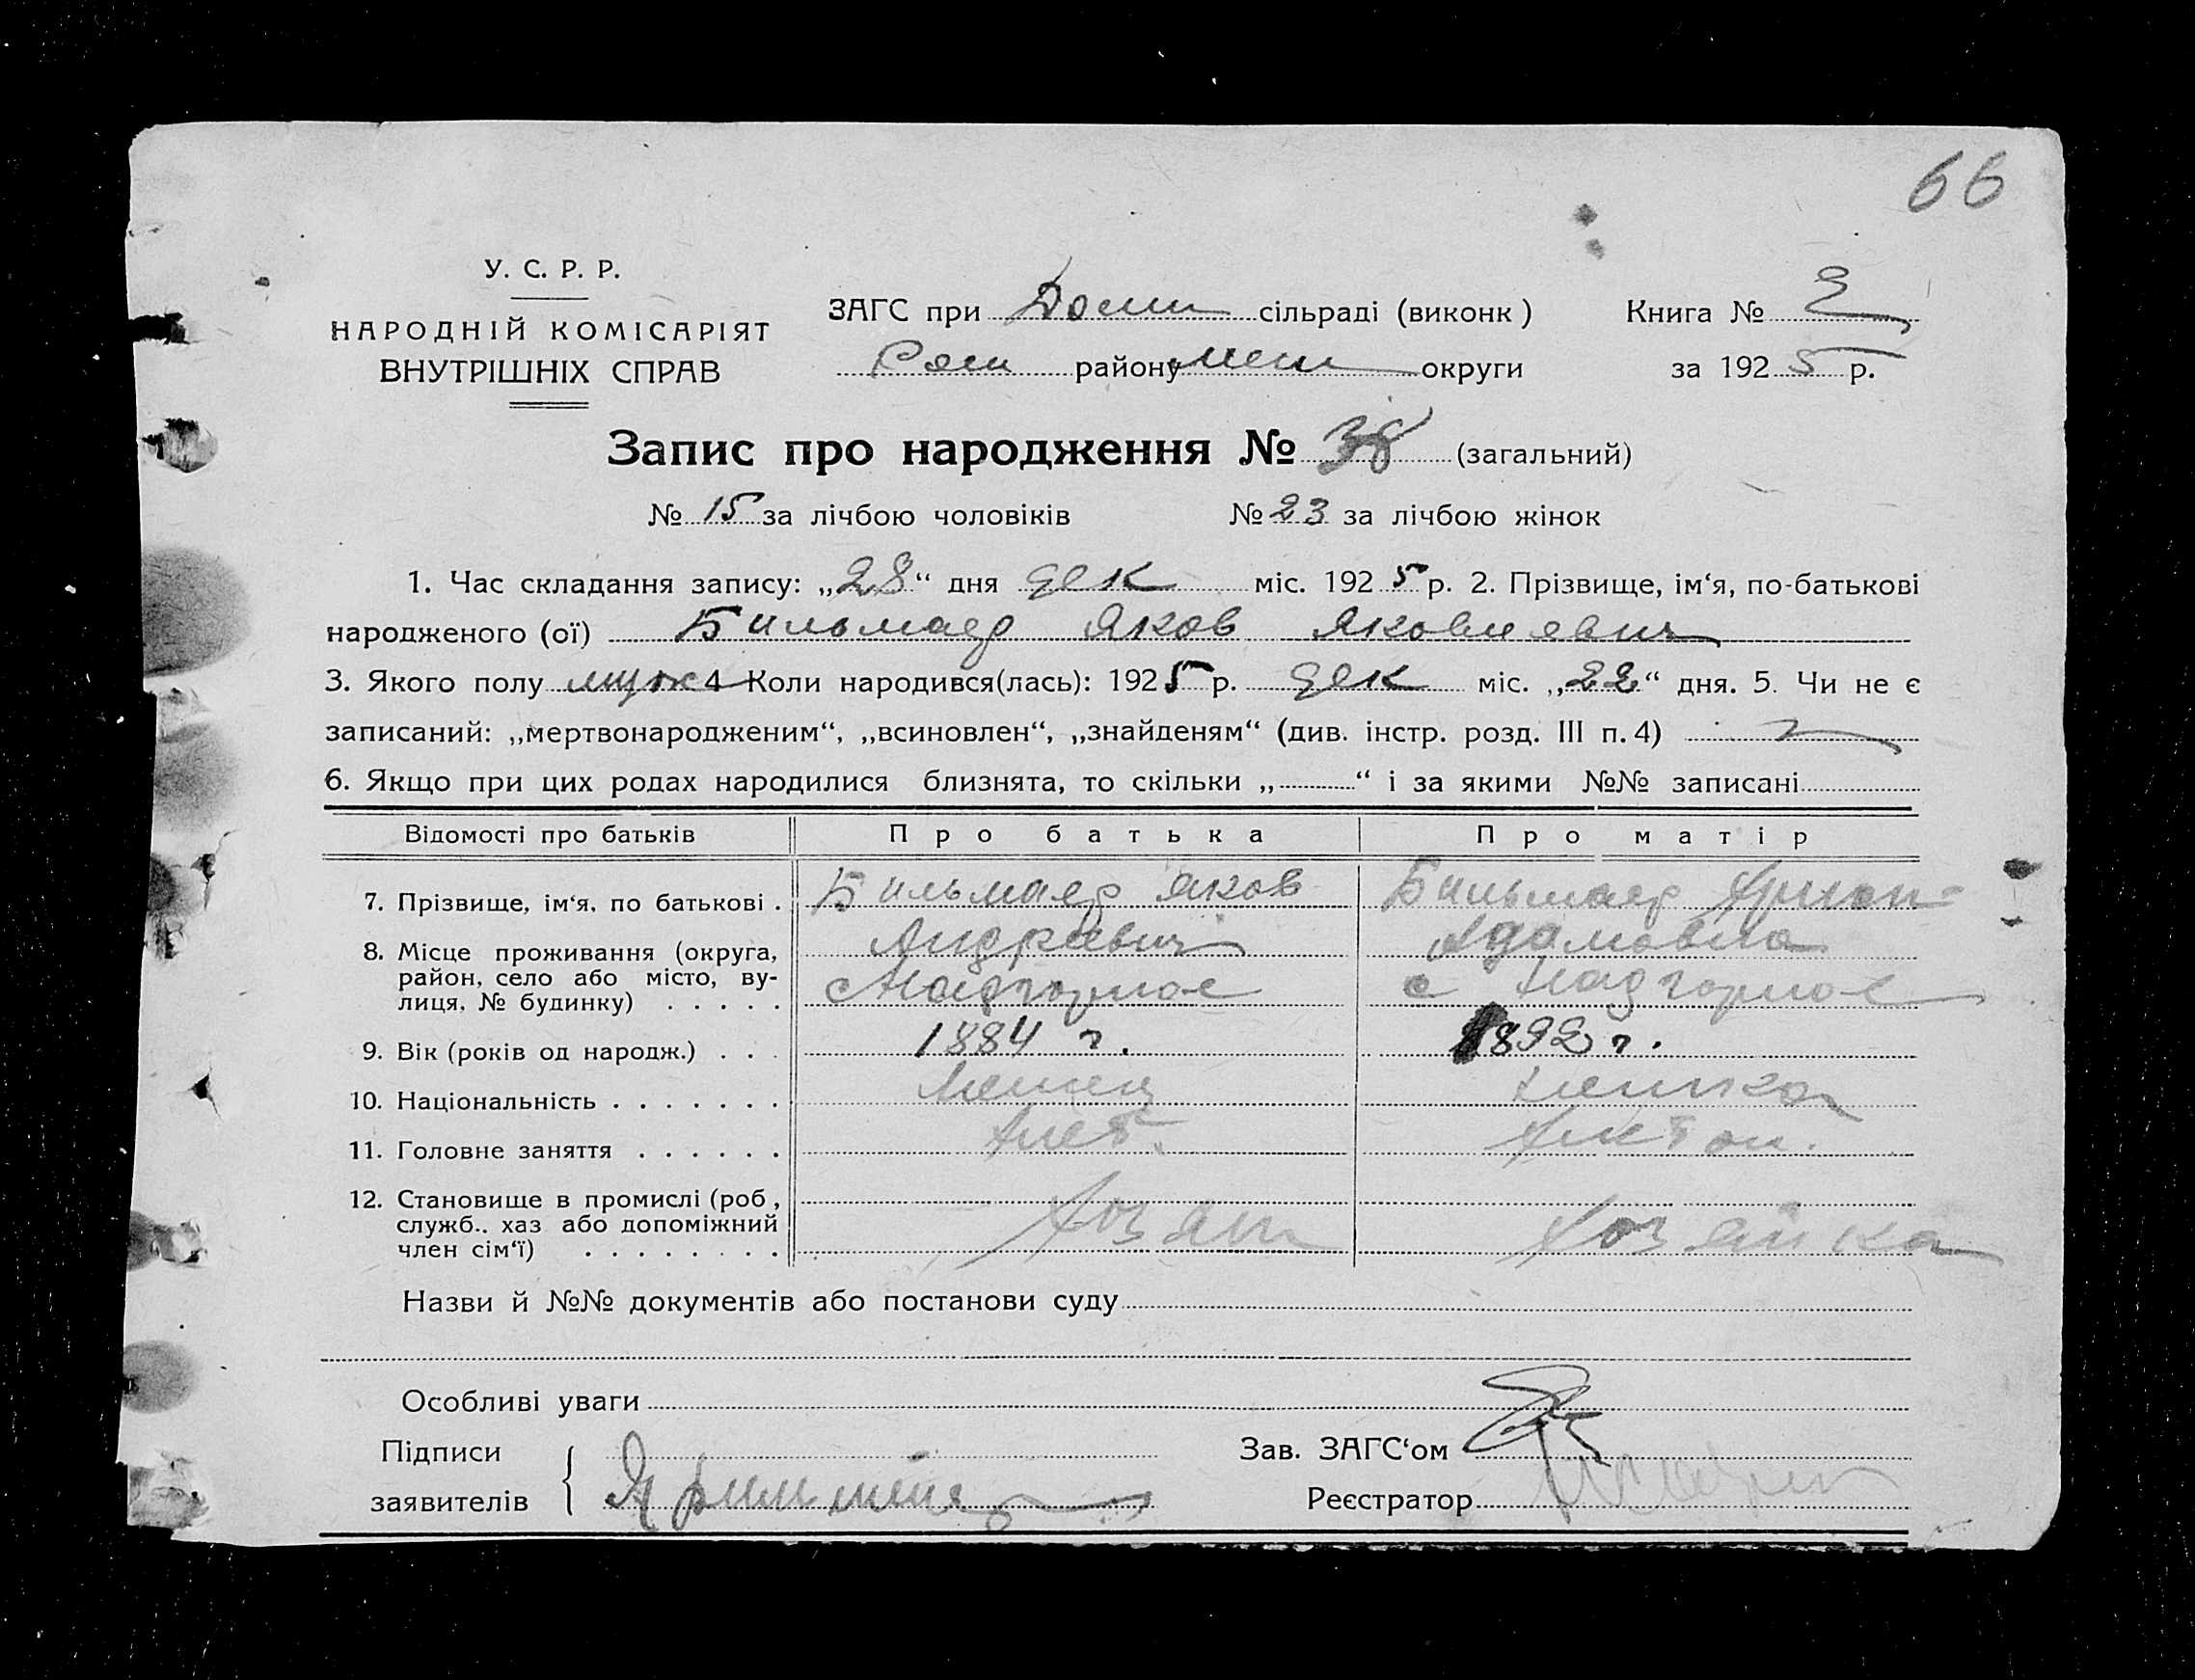 66
У. С. Р. Р.
НАРОДНІЙ КОМІСАРІЯТ
ВНУТРІШНІХ СПРАВ
ЗАГС при сільраді (виконк )
району округи
Книга №
за 1925 р.
Запис про народження № 38 (загальний)
№ 15 за лічбою чоловіків № 23 за лічбою жінок
1. Час складання запису: „28“ дня дек міс. 1925 р. 2. Прізвище, ім‘я, по-батькові
народженого (ої) Бильмаер Яков Яковлевич
3. Якого полу муж 4 Коли народився(лась): 1925 р. дек міс. „22“ дня. 5. Чи не є
записаний: „мертвонародженим“, „всиновлен“, „знайденям“ (див. інстр. розд. III п. 4)
6. Якщо при цих родах народилися близнята, то скільки „ “ і за якими №№ записані
Відомості про батьків Про батька Про матір
7. Прізвище, ім‘я, по батькові . Бильмаер Яков Бильмаер
8. Місце проживання (округа, Андреевич Адамовна
район, село або місто, ву- с Надгорное с Надгорное
лиця, № будинку) . . . . .
9. Вік (років од народж.) . . . 1884 г. 1892 г.
10. Національність . . . . . . . Немец немка
11. Головне заняття . . . . . .
12. Становище в промислі (роб , Хозяин Хозяйка
служб.. хаз або допоміжний
член сім‘ї) . . . . . . . .
Назви й №№ документів або постанови суду
Особливі уваги
Підписи
заявителів
Зав. ЗАГС‘ом
Реєстратор